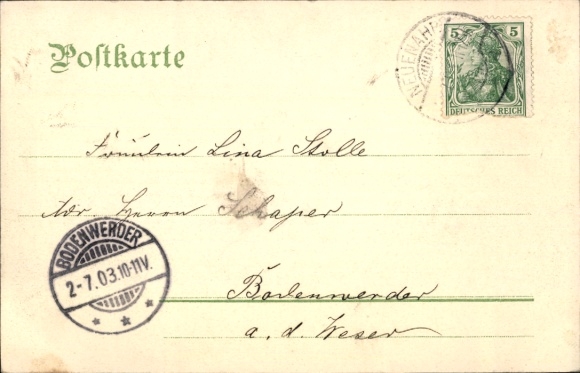 Postkarte
NEUENAHR
5 5
DEUTSCHES REICH
Fräulein Lina Stolle
Adr. Herrn Schaper
BODENWERDER
2-7.03.10-11V.
Bodenwerder
a. d. Weser